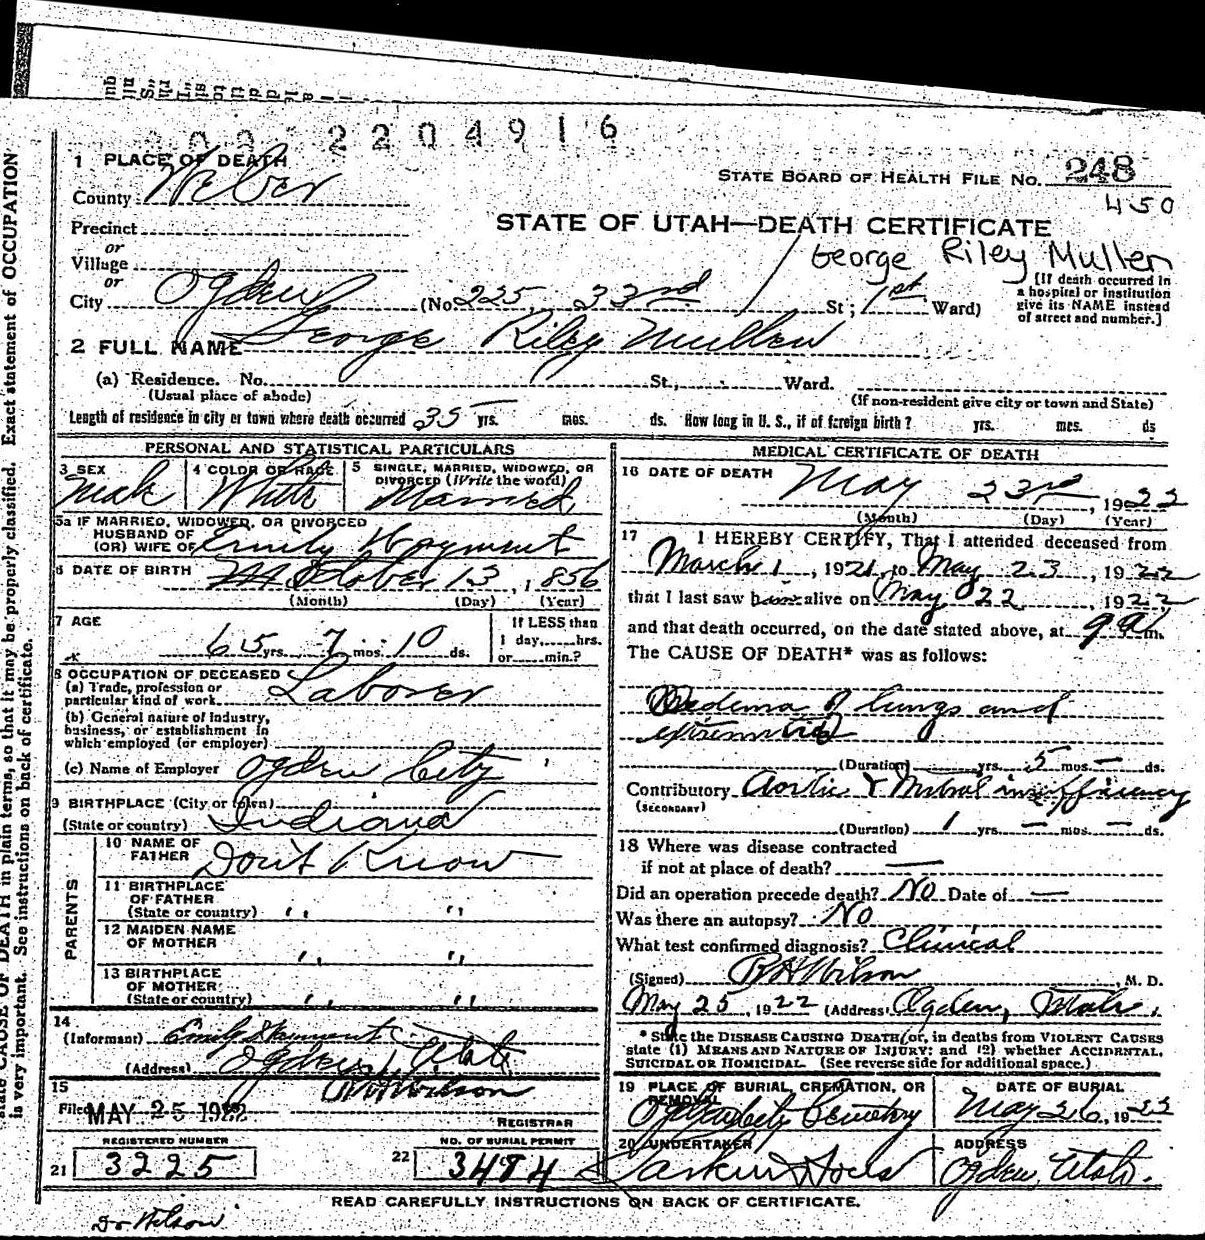 2204916
1 PLACE OF DEATH
County Weber
STATE BOARD OF HEALTH FILE NO. 248
450
Precinct
or
Village
or
STATE OF UTAH—DEATH CERTIFICATE
George Riley Mullen
City Ogden (No 225 33rd St; 1st Ward)
[If death occurred in
a hospital or institution
give its NAME instead
of street and number.]
2 FULL NAME George Riley Mullen
(a) Residence. No. St., Ward.
(Usual place of abode) (If non-resident give city or town and State)
Length of residence in city or town where death occurred 35 yrs. mos. ds. How long in U. S., if of foreign birth? yrs. mos. ds
PERSONAL AND STATISTICAL PARTICULARS
3 SEX Male
4 COLOR OR RACE White
5 SINGLE, MARRIED, WIDOWED, OR
DIVORCED (Write the word)
Married
5a IF MARRIED, WIDOWED, OR DIVORCED
HUSBAND OF
(OR) WIFE OF Emily Wayment
6 DATE OF BIRTH October 13, 1856
(Month) (Day) (Year)
7 AGE
65 yrs. 7 mos. 10 ds.
If LESS than
1 day, hrs.
or min.?
8 OCCUPATION OF DECEASED
(a) Trade, profession or
particular kind of work Laborer
(b) General nature of industry,
business, or establishment in
which employed (or employer)
(c) Name of Employer Ogden City
9 BIRTHPLACE (City or town)
(State or country) Indiana
PARENTS
10 NAME OF
FATHER Don't Know
11 BIRTHPLACE
OF FATHER
(State or country) " "
12 MAIDEN NAME
OF MOTHER " "
13 BIRTHPLACE
OF MOTHER
(State or country) " "
14
(Informant) Emily
(Address) Ogden, Utah
15
Filed MAY 25 1922 Wilson
REGISTRAR
REGISTERED NUMBER
21 3225
NO. OF BURIAL PERMIT
22 3484
MEDICAL CERTIFICATE OF DEATH
16 DATE OF DEATH May 23rd, 1922
(Month) (Day) (Year)
17 I HEREBY CERTIFY, That I attended deceased from
March 1, 1921, to May 23, 1922
that I last saw him alive on May 22 1922
and that death occurred, on the date stated above, at 9 a m.
The CAUSE OF DEATH* was as follows:
Oedema of lungs and
extremities
(Duration) yrs. 5 mos. — ds.
Contributory Aortic & Mitral insufficiency
(SECONDARY)
(Duration) 1 yrs. — mos. — ds.
18 Where was disease contracted
if not at place of death? —
Did an operation precede death? No Date of —
Was there an autopsy? No
What test confirmed diagnosis? Clinical
(Signed) R H Wilson, M. D.
May 25, 1922 (Address) Ogden, Utah.
*State the DISEASE CAUSING DEATH, or, in deaths from VIOLENT CAUSES
state (1) MEANS AND NATURE OF INJURY; and (2) whether ACCIDENTAL,
SUICIDAL OR HOMICIDAL. (See reverse side for additional space.)
19 PLACE OF BURIAL, CREMATION, OR
REMOVAL
Ogden City Cemetery
DATE OF BURIAL
May 26, 1922
20 UNDERTAKER
Larkin & Sons
ADDRESS
Ogden, Utah.
READ CAREFULLY INSTRUCTIONS ON BACK OF CERTIFICATE.
Dr Wilson
state CAUSE OF DEATH in plain terms, so that it may be properly classified. Exact statement of OCCUPATION
is very important. See instructions on back of certificate.